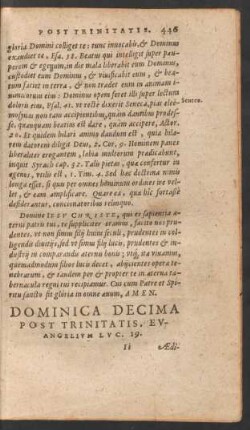 POST TRINITATIS. 446
gloria Domini colliget te: tunc invocabis, & Dominus
exaudiet te. Esa. 58. Beati qui intelligit super pau-
perem & egenum, in die mala liberabit eum Dominus,
custodiet eum Dominus, & vivificabit eum, & bea-
tum faciet in terra, & non tradet eum in animam i-
nimicorum eius: Dominus opem feret illi super lectum
doloris eius, Psal. 41. ut recte dixerit Seneca, plus elee-
Seneca.
mosynas non tam accipientibus, quam dantibus prodes-
se. quanquam beatius est dare, quam accipere, Actor.
20. Et quidem hilari animo dandum est, quia hila-
rem datorem diligit Deus, 2. Cor. 9. Hominem panes
liberaliter erogantem, labia multorum praedicabunt,
inquit Syrach cap. 31. Talis pietas, quae confertur in
egenos, redit est, 1. Tim. 4. Sed haec doctrina nimis
longa esset, si quis per omnes hominum ordines ire vel-
let, & eam amplificare. Quare ea, quae hic fortasse
desiderantur, concionatoribus relinquo.
Domine IESV CHRISTE, qui es sapientia ae-
terni patris tui, te suppliciter oramus, facito nos pru-
dentes, ut non simus filii huius seculi, prudentes in col-
ligendis divitiis, sed ut simus filii lucis, prudentes & in-
dustrii in comparandis aeternis bonis: utque, ita vivamus,
quemadmodum filios lucis decet, abiicientes opera te-
nebrarum, & tandem per & propter te in aeterna ta-
bernacula regni tui recipiamur. Cui cum Patre et Spi-
ritu sancto sit gloria in omne aevum, AMEN.
DOMINICA DECIMA
POST TRINITATIS, EV-
ANGELIVM LVC. 19.
Ii
Ædi-